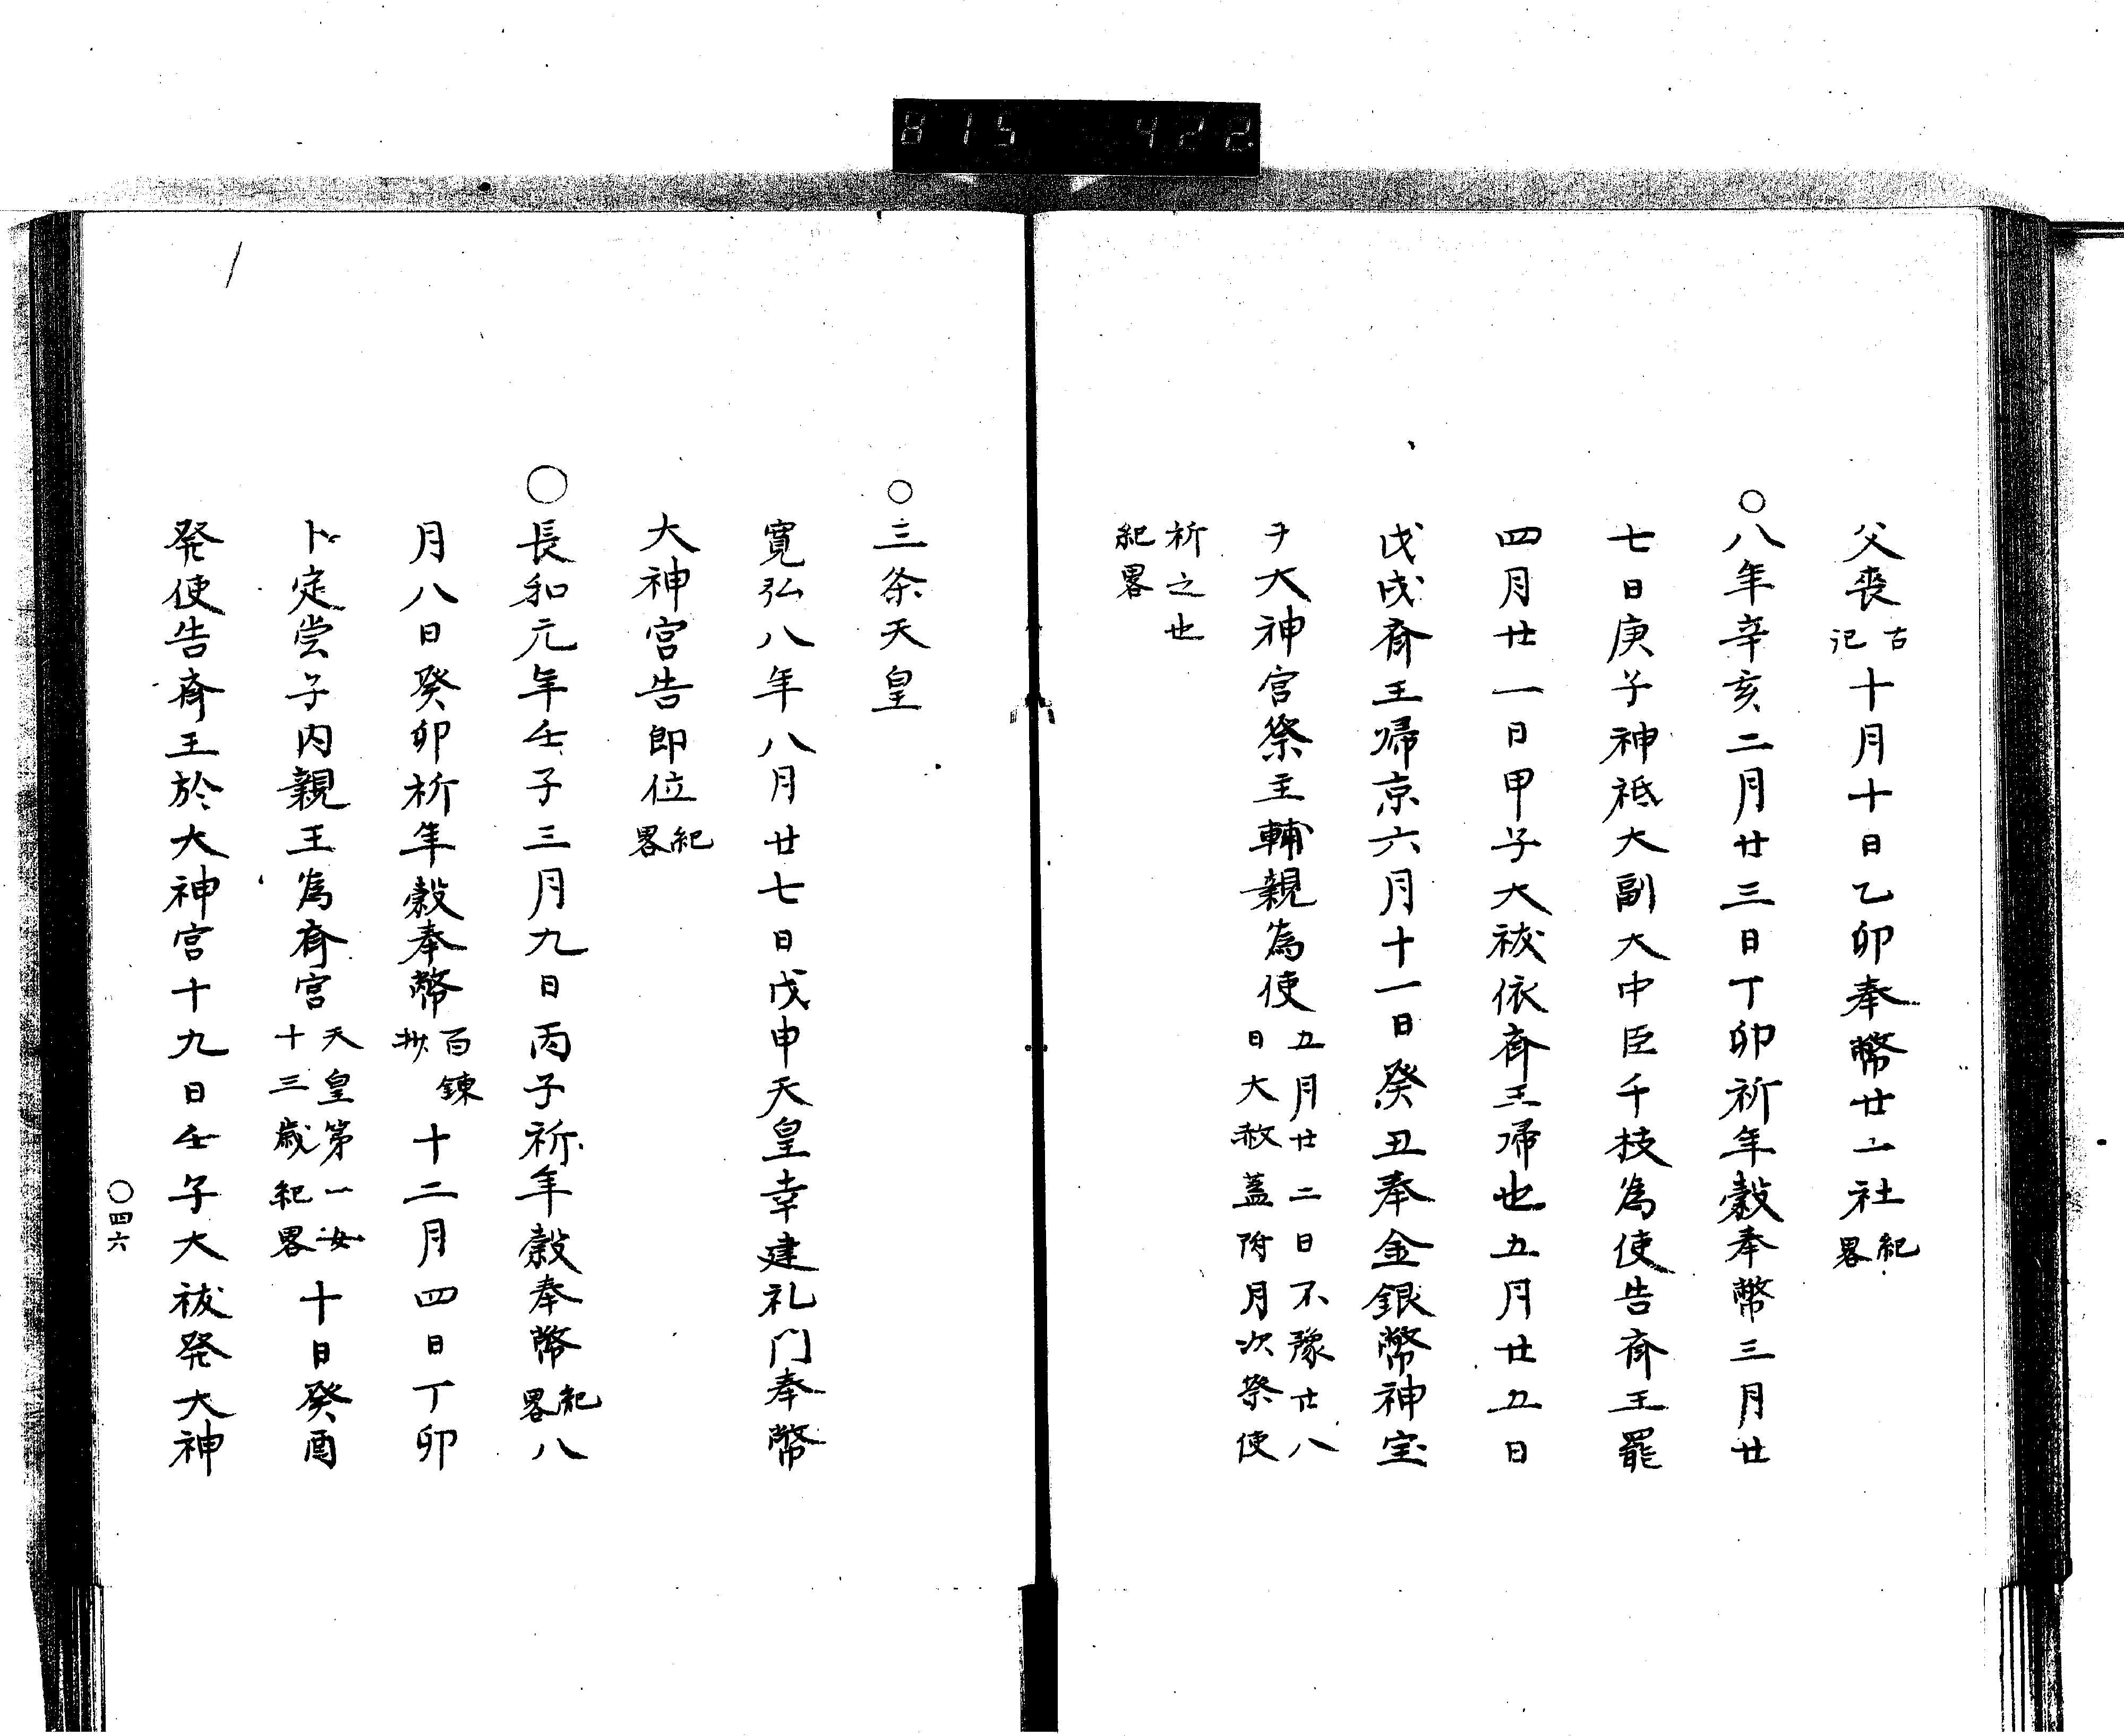 815 422
父喪古記十月十日乙卯奉幣廿一社紀畧
○八年辛亥二月廿三日丁卯祈年穀奉幣三月廿
七日庚子神祗大副大中臣千枝為使告斎王罷
四月廿一日甲子大祓依斎王帰也五月廿五日
戊戌斎王帰京六月十一日癸丑奉金銀幣神宝
于大神宮祭主輔親為使五月廿二日不豫廿八
日大赦蓋附月次祭使
祈之也
紀畧
○三条天皇
寛弘八年八月廿七日戊申天皇幸建礼门奉幣
大神宮告即位紀畧
○長和元年壬子三月九日丙子祈年穀奉幣紀畧八
月八日癸卯祈年穀奉幣百錬抄十二月四日丁卯
卜定当子内親王為斎宮天皇第一女十三歳紀畧十日癸酉
発使告斎王於大神宮十九日壬子大祓発大神
○四六